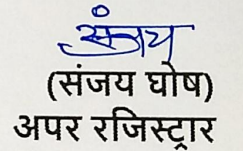 संजय
(संजय घोष)
अपर रजिस्ट्रार